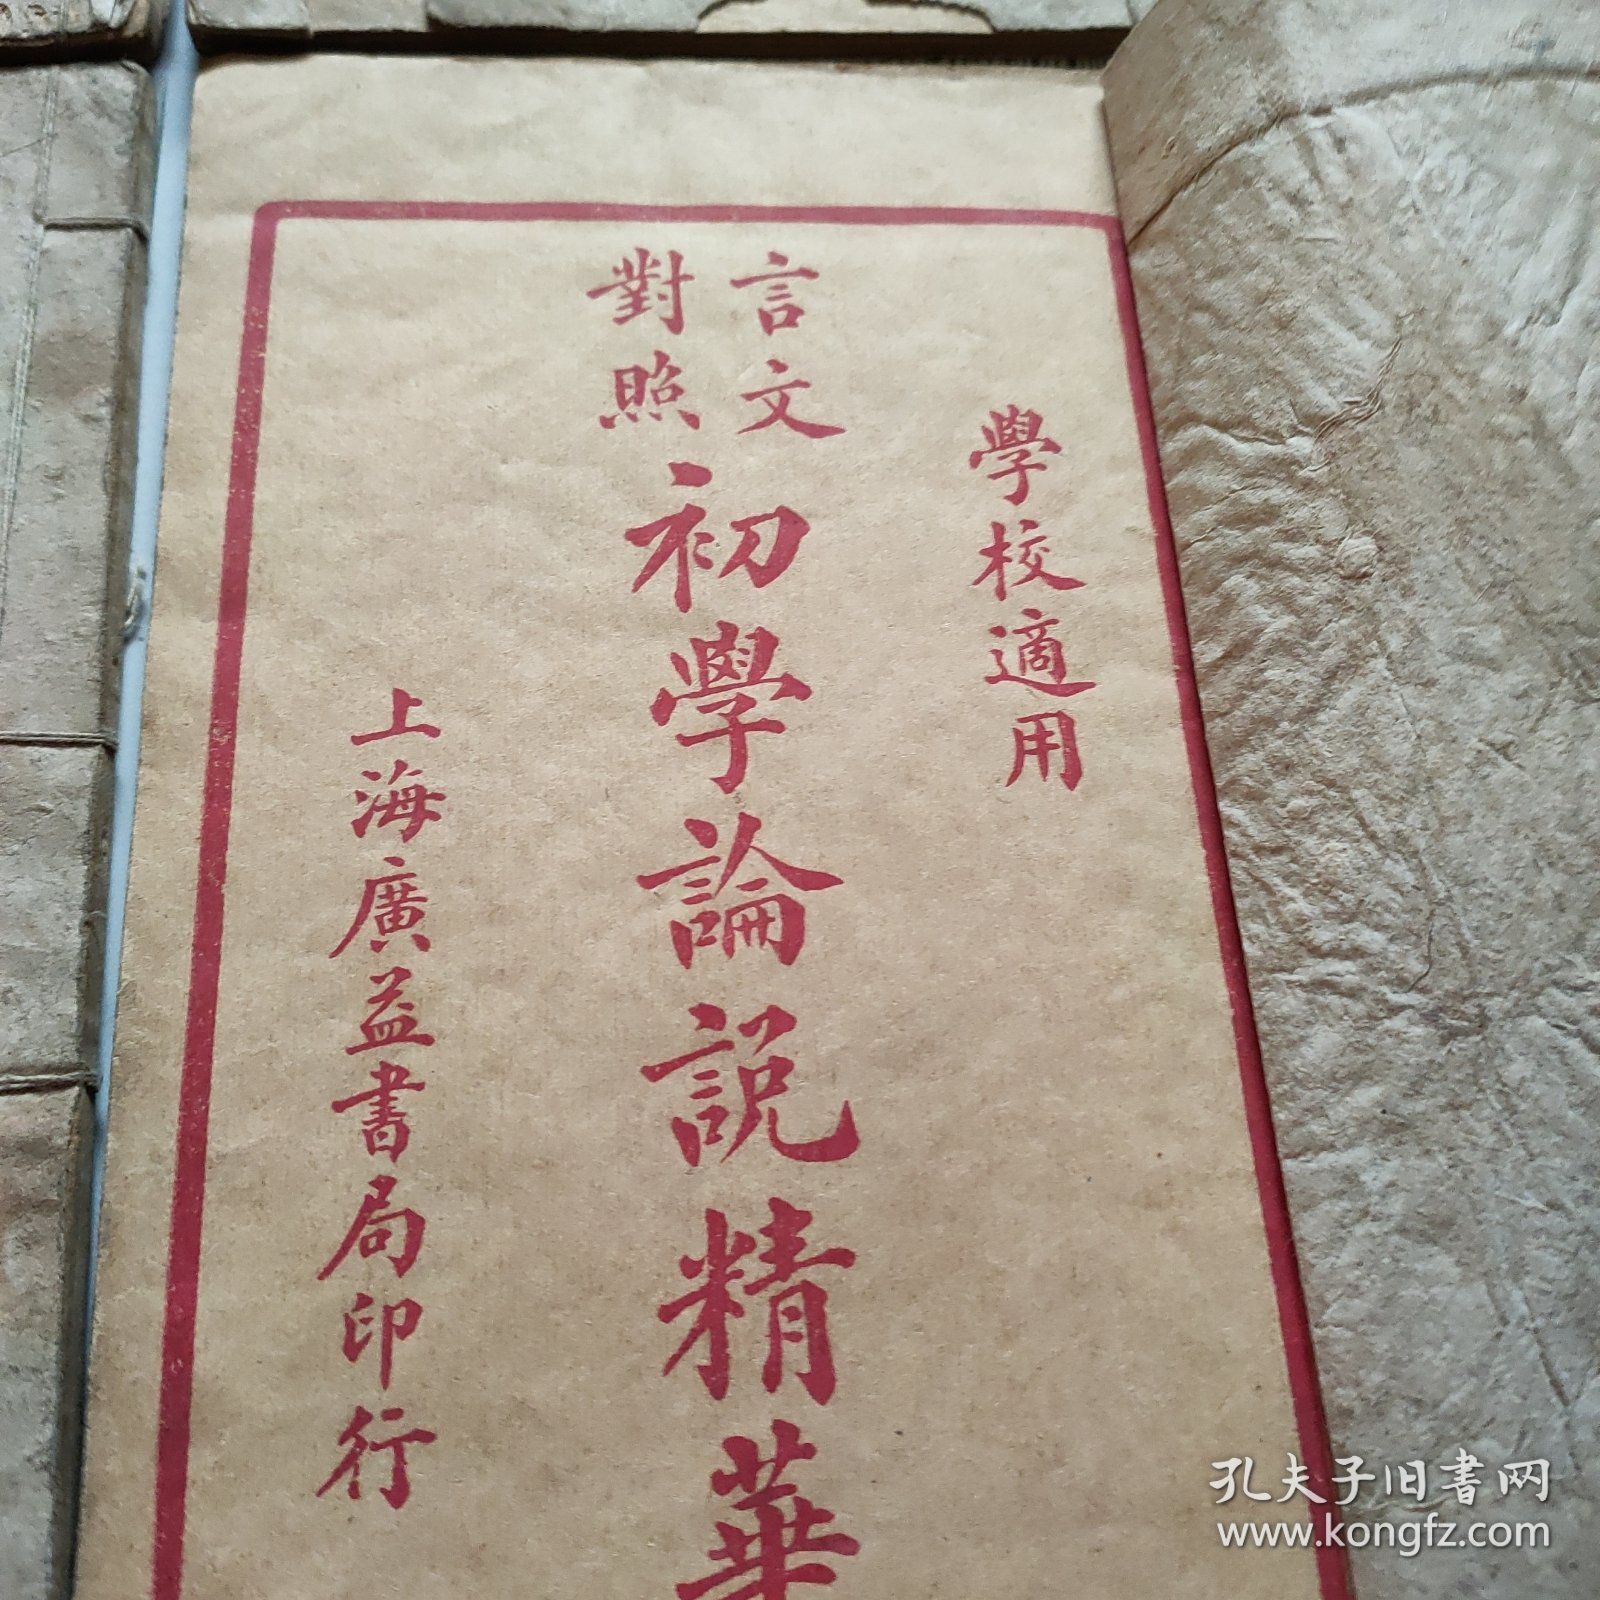 學校適用
言文
對照
初學論説精華
上海廣益書局印行
孔夫子旧书网
www.kongfz.com